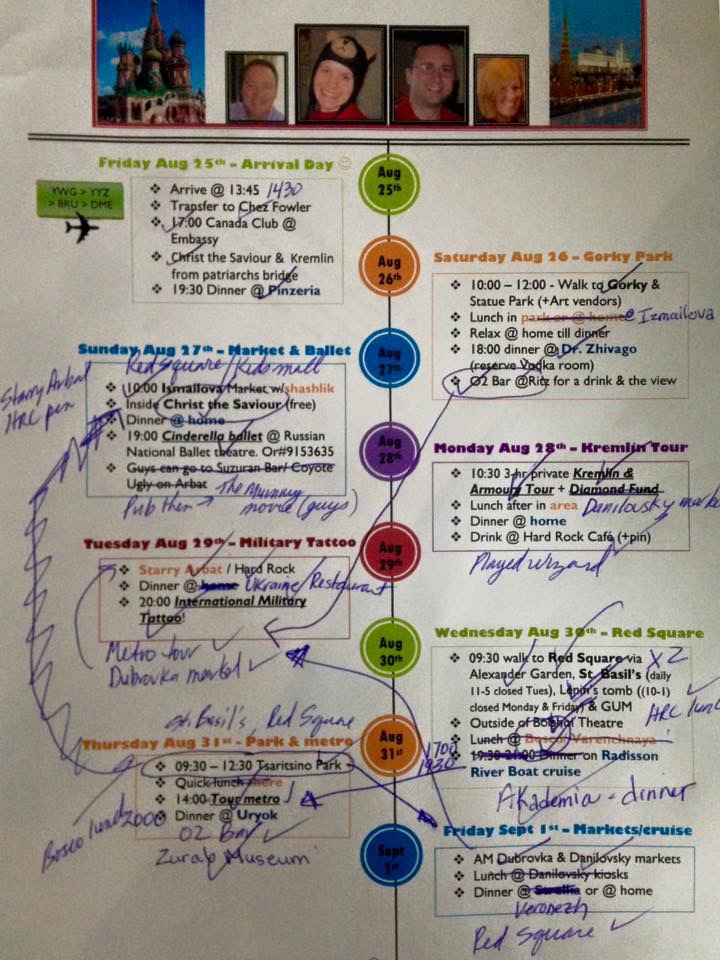 Friday Aug 25th – Arrival Day ☺
YWG > YYZ
> BRU > DME
❖ Arrive @ 13:45 1430
❖ Transfer to Chez Fowler
❖ 17:00 Canada Club @
Embassy
❖ Christ the Saviour & Kremlin
from patriarchs bridge
❖ 19:30 Dinner @ Pinzeria
Aug
25th
Aug
26th
Saturday Aug 26 – Gorky Park
❖ 10:00 – 12:00 - Walk to Gorky &
Statue Park (+Art vendors)
❖ Lunch in park or @ home @ Izmailova
❖ Relax @ home till dinner
❖ 18:00 dinner @ Dr. Zhivago
(reserve Vodka room)
❖ O2 Bar @Ritz for a drink & the view
Sunday Aug 27th – Market & Ballet
Red square/Kids mall
Starry Arbat
HRC pin
❖ 10:00 Ismailova Market w/shashlik
❖ Inside Christ the Saviour (free)
❖ Dinner @ home
❖ 19:00 Cinderella ballet @ Russian
National Ballet theatre. Or#9153635
❖ Guys can go to Suzuran Bar/ Coyote
Ugly on Arbat
Pub then → The Mummy
movie (guys)
Aug
27th
Aug
28th
Monday Aug 28th – Kremlin Tour
❖ 10:30 3-hr private Kremlin &
Armoury Tour + Diamond Fund
❖ Lunch after in area Danilovsky market
❖ Dinner @ home
❖ Drink @ Hard Rock Café (+pin)
Played wizard
Tuesday Aug 29th – Military Tattoo
❖ Starry Arbat / Hard Rock
❖ Dinner @ home Ukraine/Restaurant
❖ 20:00 International Military
Tattoo!
Metro tour
Dubrovka market
Aug
29th
Aug
30th
Wednesday Aug 30th – Red Square
❖ 09:30 walk to Red Square via X2
Alexander Garden, St. Basil's (daily
11-5 closed Tues), Lenin's tomb ((10-1)
closed Monday & Friday) & GUM
HRC lunch
❖ Outside of Bolshoi Theatre
❖ Lunch @ Bosco Varenchnaya
❖ 19:30-21:00 Dinner on Radisson
River Boat cruise
1700
1930
Akademia - dinner
St. Basil's, Red Square
Thursday Aug 31st – Park & metro
❖ 09:30 – 12:30 Tsaritsino Park
❖ Quick lunch there
❖ 14:00 Tour metro
❖ Dinner @ Uryok
Bosco lunch 2000
O2 Bar
Zurab Museum
Aug
31st
Sept
1st
Friday Sept 1st – Markets/cruise
❖ AM Dubrovka & Danilovsky markets
❖ Lunch @ Danilovsky kiosks
❖ Dinner @ Strelka or @ home
Veronezh
Red Square